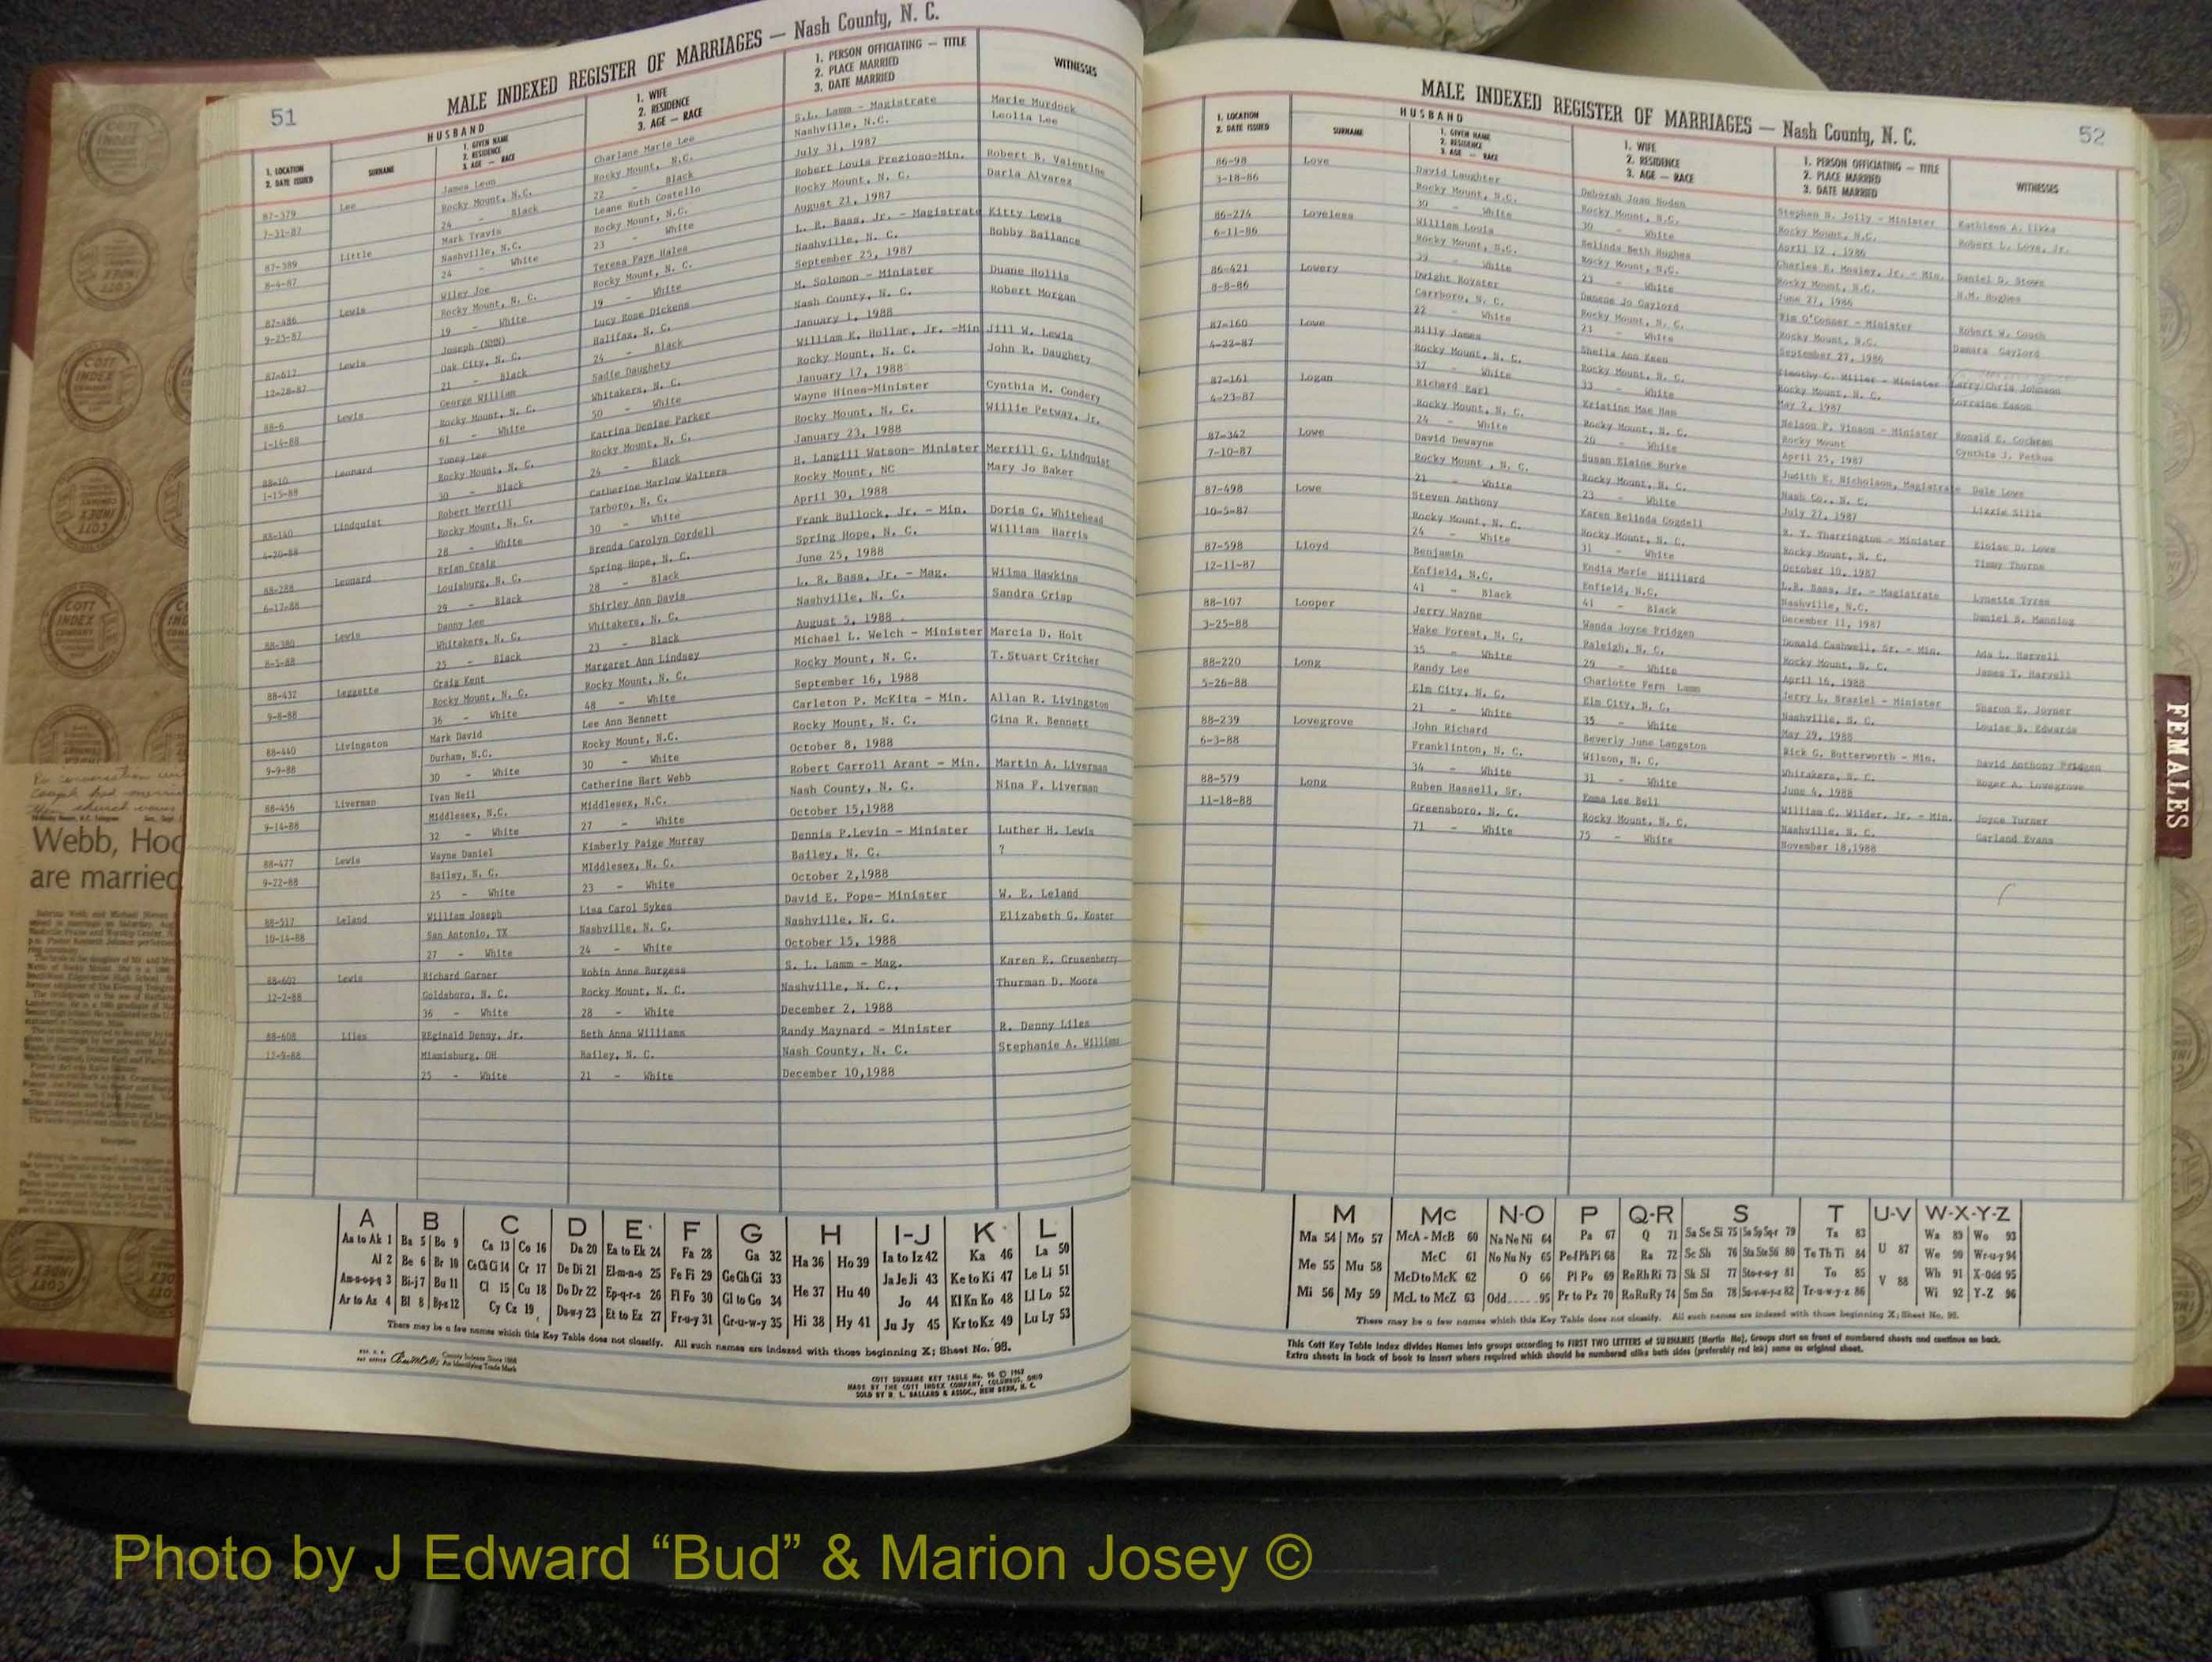 51
MALE INDEXED REGISTER OF MARRIAGES — Nash County, N. C.
1. LOCATION
2. DATE ISSUED
HUSBAND
SURNAME
1. GIVEN NAME
2. RESIDENCE
3. AGE — RACE
1. WIFE
2. RESIDENCE
3. AGE — RACE
1. PERSON OFFICIATING — TITLE
2. PLACE MARRIED
3. DATE MARRIED
WITNESSES
87-379 Lee James Leon Charlane Marie Lee S.L. Lamm - Magistrate Marie Murdock
7-31-87 Rocky Mount, N.C. Rocky Mount, N.C. Nashville, N.C. Leolia Lee
24 - Black 22 - Black July 31, 1987
87-389 Little Mark Travis Leane Ruth Costello Robert Louis Prezioso-Min. Robert B. Valentine
8-4-87 Nashville, N.C. Rocky Mount, N.C. Rocky Mount, N. C. Darla Alvarez
24 - White 23 - White August 21, 1987
87-486 Lewis Wiley Joe Teresa Faye Hales L. R. Bass, Jr. - Magistrate Kitty Lewis
9-25-87 Rocky Mount, N. C. Rocky Mount, N. C. Nashville, N. C. Bobby Ballance
19 - White 19 - White September 25, 1987
87-617 Lewis Joseph (NMN) Lucy Rose Dickens M. Solomon - Minister Duane Hollis
12-28-87 Oak City, N. C. Halifax, N. C. Nash County, N. C. Robert Morgan
21 - Black 24 - Black January 1, 1988
88-6 Lewis George William Sadie Daughety William E. Hollar, Jr. -Min Jill W. Lewis
1-14-88 Rocky Mount, N. C. Whitakers, N. C. Rocky Mount, N. C. John R. Daughety
61 - White 50 - White January 17, 1988
88-10 Leonard Toney Lee Katrina Denise Parker Wayne Hines-Minister Cynthia M. Condery
1-15-88 Rocky Mount, N. C. Rocky Mount, N. C. Rocky Mount, N. C. Willie Petway, Jr.
30 - Black 24 - Black January 23, 1988
88-140 Lindquist Robert Merrill Catherine Marlow Walters H. Langill Watson- Minister Merrill G. Lindquist
4-20-88 Rocky Mount, N. C. Tarboro, N. C. Rocky Mount, NC Mary Jo Baker
28 - White 30 - White April 30, 1988
88-288 Leonard Brian Craig Brenda Carolyn Cordell Frank Bullock, Jr. - Min. Doris C. Whitehead
6-17-88 Louisburg, N. C. Spring Hope, N. C. Spring Hope, N. C. William Harris
29 - Black 28 - Black June 25, 1988
88-380 Lewis Danny Lee Shirley Ann Davis L. R. Bass, Jr. - Mag. Wilma Hawkins
8-5-88 Whitakers, N. C. Whitakers, N. C. Nashville, N. C. Sandra Crisp
25 - Black 23 - Black August 5, 1988
88-432 Leggette Craig Kent Margaret Ann Lindsey Michael L. Welch - Minister Marcia D. Holt
9-8-88 Rocky Mount, N. C. Rocky Mount, N. C. Rocky Mount, N. C. T. Stuart Critcher
36 - White 48 - White September 16, 1988
88-440 Livingston Mark David Lee Ann Bennett Carleton P. McKita - Min. Allan R. Livingston
9-9-88 Durham, N.C. Rocky Mount, N.C. Rocky Mount, N. C. Gina R. Bennett
30 - White 30 - White October 8, 1988
88-456 Liverman Ivan Neil Catherine Hart Webb Robert Carroll Arant - Min. Martin A. Liverman
9-14-88 Middlesex, N.C. Middlesex, N.C. Nash County, N. C. Nina F. Liverman
32 - White 27 - White October 15,1988
88-477 Lewis Wayne Daniel Kimberly Paige Murray Dennis P.Levin - Minister Luther H. Lewis
9-22-88 Bailey, N. C. MIddlesex, N. C. Bailey, N. C. ?
25 - White 23 - White October 2,1988
88-517 Leland William Joseph Lisa Carol Sykes David E. Pope- Minister W. E. Leland
10-14-88 San Antonio, TX Nashville, N. C. Nashville, N. C. Elizabeth G. Koster
27 - White 24 - White October 15, 1988
88-602 Lewis Richard Garner Robin Anne Burgess S. L. Lamm - Mag. Karen E. Grusenberry
12-2-88 Goldsboro, N. C. Rocky Mount, N. C. Nashville, N. C., Thurman D. Moore
36 - White 28 - White December 2, 1988
88-608 Liles REginald Denny, Jr. Beth Anna Williams Randy Maynard - Minister R. Denny Liles
12-9-88 Miamisburg, OH Bailey, N. C. Nash County, N. C. Stephanie A. Williams
25 - White 21 - White December 10,1988
A B C D E F G H I-J K L
Aa to Ak 1 Ba 5 Bo 9 Ca 13 Co 16 Da 20 Ea to Ek 24 Fa 28 Ga 32 Ha 36 Ho 39 Ia to Iz 42 Ka 46 La 50
Al 2 Be 6 Br 10 Ce Ch Ci 14 Cr 17 De Di 21 El-m-n-o 25 Fe Fi 29 Ge Gh Gi 33 Ja Je Ji 43 Ke to Ki 47 Le Li 51
Am-n-o-p-q 3 Bi-j 7 Bu 11 Cl 15 Cu 18 Do Dr 22 Ep-q-r-s 26 Fl Fo 30 Gl to Go 34 He 37 Hu 40 Jo 44 Kl Kn Ko 48 Ll Lo 52
Ar to Az 4 Bl 8 By-z 12 Cy Cz 19 Du-w-y 23 Et to Ez 27 Fr-u-y 31 Gr-u-w-y 35 Hi 38 Hy 41 Ju Jy 45 Kr to Kz 49 Lu Ly 53
There may be a few names which this Key Table does not classify. All such names are indexed with those beginning X; Sheet No. 95.
County Indexes Since 1888
An Identifying Trade Mark
COTT SURNAME KEY TABLE No. 96 ©
MADE BY THE COTT INDEX COMPANY, COLUMBUS, OHIO
SOLD BY R. L. BALLARD & ASSOC., NEW BERN, N. C.
MALE INDEXED REGISTER OF MARRIAGES — Nash County, N. C.
52
1. LOCATION
2. DATE ISSUED
HUSBAND
SURNAME
1. GIVEN NAME
2. RESIDENCE
3. AGE — RACE
1. WIFE
2. RESIDENCE
3. AGE — RACE
1. PERSON OFFICIATING — TITLE
2. PLACE MARRIED
3. DATE MARRIED
WITNESSES
86-98 Love David Laughter Deborah Joan Noden Stephen B. Jolly - Minister Kathleen A.
3-18-86 Rocky Mount, N.C. Rocky Mount, N.C. Rocky Mount, N.C. Robert L. Love, Jr.
30 - White 30 - White April 12, 1986
86-274 Loveless William Louis Belinda Beth Hughes Charles E. Mosley, Jr. - Min. Daniel D. Stowe
6-11-86 Rocky Mount, N.C. Rocky Mount, N.C. Rocky Mount, N.C. Hughes
White 23 - White June 27, 1986
86-421 Lowery Dwight Royster Danene Jo Gaylord Tim O'Conner - Minister Robert W. Couch
8-8-86 Carrboro, N. C. Rocky Mount, N. C. Rocky Mount, N.C. Damara Gaylord
22 - White 23 - White September 27, 1986
87-160 Lowe Billy James Sheila Ann Keen Timothy C. Miller - Minister Larry Chris Johnson
4-22-87 Rocky Mount, N. C. Rocky Mount, N. C. Rocky Mount, N. C. Lorraine Eason
37 - White 33 - White May 2, 1987
87-161 Logan Richard Earl Kristine Mae Ham Nelson P. Vinson - Minister Ronald E. Cochran
4-23-87 Rocky Mount, N. C. Rocky Mount, N. C. Rocky Mount Cynthia J. Petkus
24 - White 20 - White April 25, 1987
87-342 Lowe David Dewayne Susan Elaine Burke Judith E. Nicholson, Magistrate Dale Lowe
7-10-87 Rocky Mount , N. C. Rocky Mount, N. C. Nash Co., N. C. Lizzie Sills
21 - White 23 - White July 27, 1987
87-498 Lowe Steven Anthony Karen Belinda Cogdell R. Y. Tharrington - Minister Eloise D. Lowe
10-5-87 Rocky Mount, N. C. Rocky Mount, N. C. Rocky Mount, N. C. Timmy Thorne
24 - White 31 - White October 10, 1987
87-598 Lloyd Benjamin Endia Marie Hilliard L.R. Bass, Jr. - Magistrate Lynette Tyree
12-11-87 Enfield, N.C. Enfield, N.C. Nashville, N.C. Daniel B. Manning
41 - Black 41 - Black December 11, 1987
88-107 Looper Jerry Wayne Wanda Joyce Pridgen Donald Cashwell, Sr. - Min. Ada L. Harvell
3-25-88 Wake Forest, N. C. Raleigh, N. C. Rocky Mount, N. C. James T. Harvell
35 - White 29 - White April 16, 1988
88-220 Long Randy Lee Charlotte Fern Lamm Jerry L. Braziel - Minister Sharon E. Joyner
5-26-88 Elm City, N. C. Elm City, N. C. Nashville, N. C. Louise B. Edwards
21 - White 35 - White May 29, 1988
88-239 Lovegrove John Richard Beverly June Langston Rick G. Butterworth - Min. David Anthony Pridgen
6-3-88 Franklinton, N. C. Wilson, N. C. Whitakers, N. C. Roger A. Lovegrove
34 - White 31 - White June 4, 1988
88-579 Long Ruben Hassell, Sr. Emma Lee Bell William C. Wilder, Jr. - Min. Joyce Turner
11-18-88 Greensboro, N. C. Rocky Mount, N. C. Nashville, N. C. Garland Evans
71 - White 75 - White November 18,1988
M Mc N-O P Q-R S T U-V W-X-Y-Z
Ma 54 Mo 57 McA - McB 60 Na Ne Ni 64 Pa 67 Q 71 Sa Se Si 75 So Sp Sq-r 79 Ta 83 Wa 89 Wo 93
McC 61 No Nu Ny 65 Pe-f Ph Pi 68 Ra 72 Sc Sh 76 Sta Ste Sti 80 Te Th Ti 84 U 87 We 90 Wr-u-y 94
Me 55 Mu 58 McD to McK 62 O 66 Pl Po 69 Re Rh Ri 73 Sk Sl 77 Sto-r-u-y 81 To 85 Wh 91 X-Odd 95
Mi 56 My 59 McL to McZ 63 Odd 95 Pr to Pz 70 Ro Ru Ry 74 Sm Sn 78 Su-v-w-y-z 82 Tr-u-w-y-z 86 V 88 Wi 92 Y-Z 96
There may be a few names which this Key Table does not classify. All such names are indexed with those beginning X; Sheet No. 95.
This Cott Key Table Index divides Names into groups according to FIRST TWO LETTERS of SURNAMES (Martin Ma). Groups start on front of numbered sheets and continue on back.
Extra sheets in back of book to insert where required which should be numbered alike both sides (preferably red ink) same as original sheet.
FEMALES
Webb, Hoo
are married
COTT
INDEX
COMPANY
Photo by J Edward “Bud” & Marion Josey ©